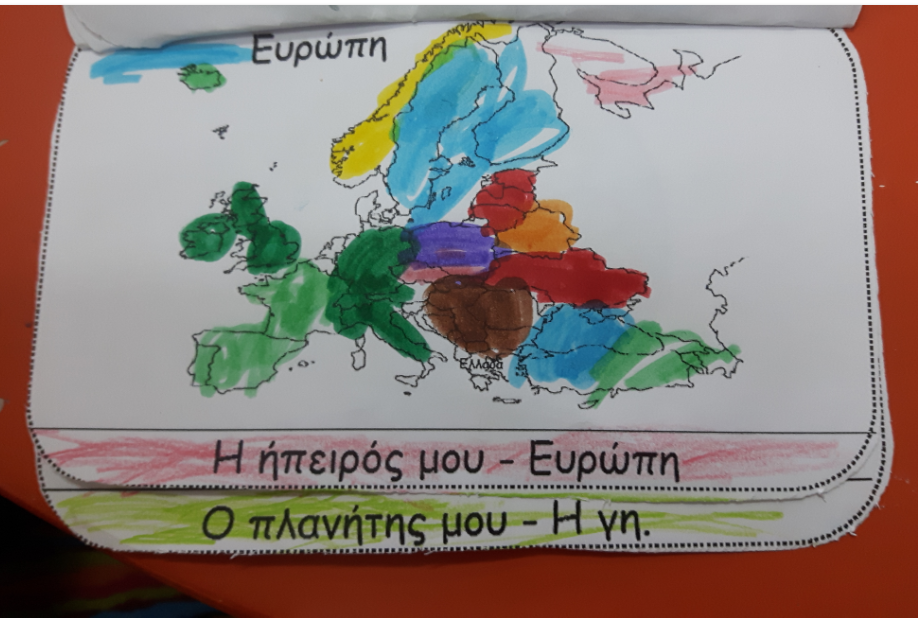 Ευρώπη
Ελλάδα
Η ήπειρός μου - Ευρώπη
Ο πλανήτης μου - Η γη.